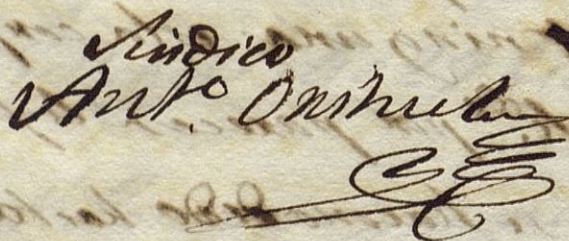 Sindico
Ant.º Orihuela